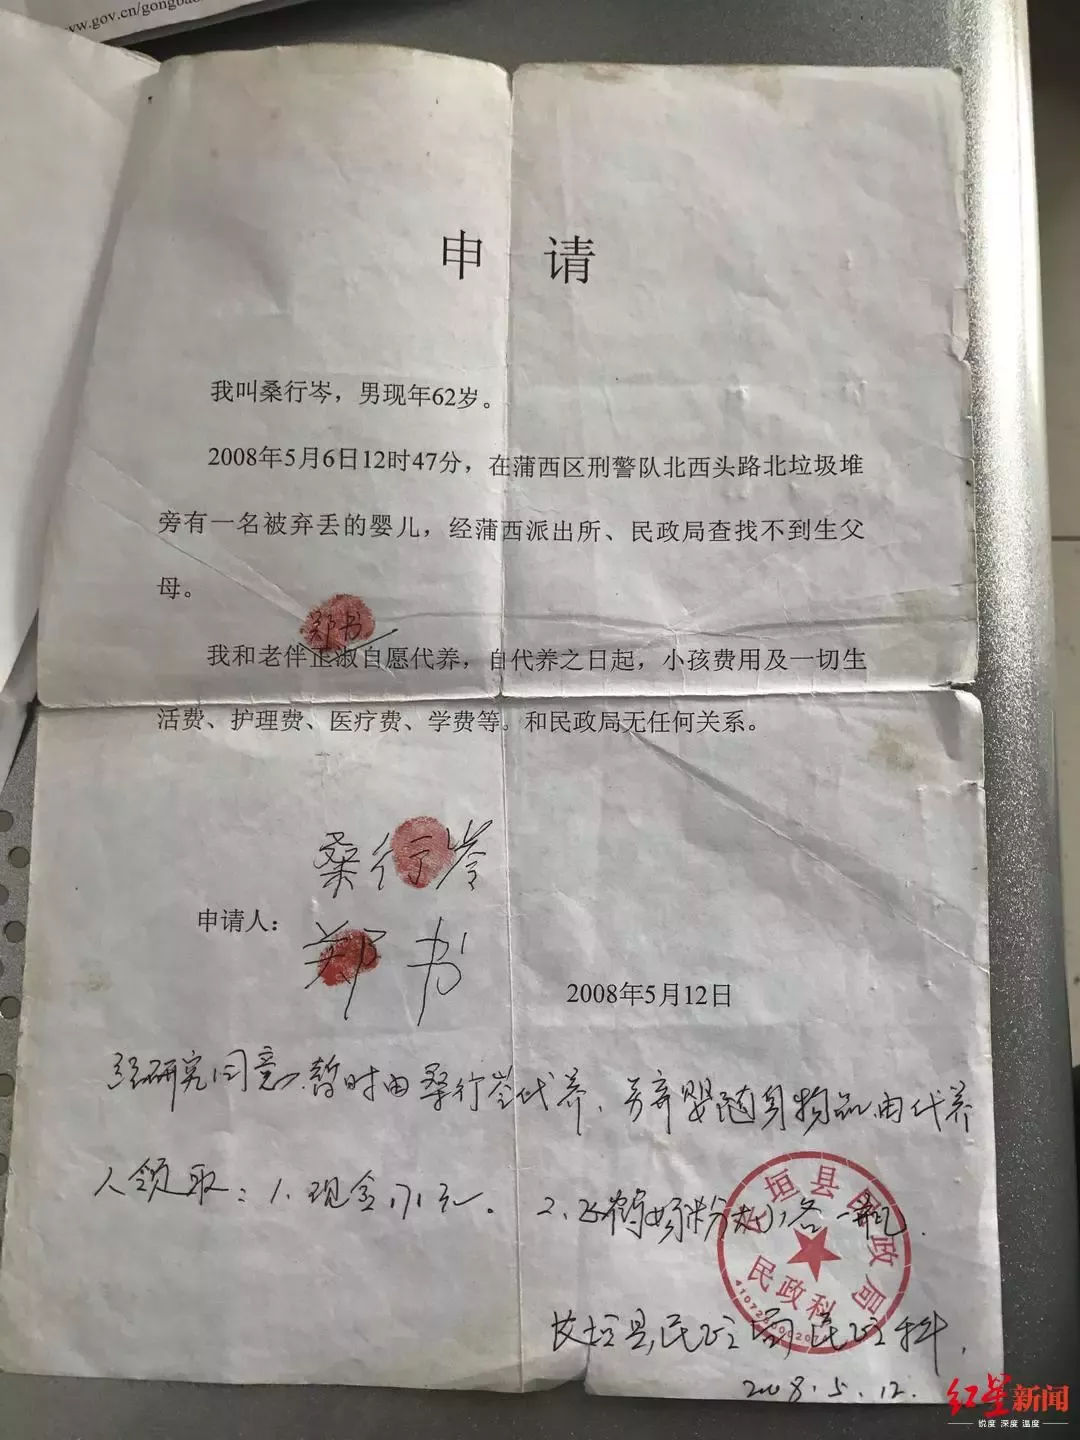 www.gov.cn/gongbao
申 请
我叫桑行岑，男现年62岁。
2008年5月6日12时47分，在蒲西区刑警队北西头路北垃圾堆
旁有一名被弃丢的婴儿，经蒲西派出所、民政局查找不到生父
母。
郑书
我和老伴正淑自愿代养，自代养之日起，小孩费用及一切生
活费、护理费、医疗费、学费等。和民政局无任何关系。
桑行岺
申请人：
郑书
2008年5月12日
经研究同意暂时由桑行岺代养、另弃婴随身物品由代养
人领取：1、现金 元。 2、飞鹤奶粉 各一
长垣县民政局
民政科
长垣县民政局民政科.
2008.5.12.
红星新闻
锐度 深度 温度